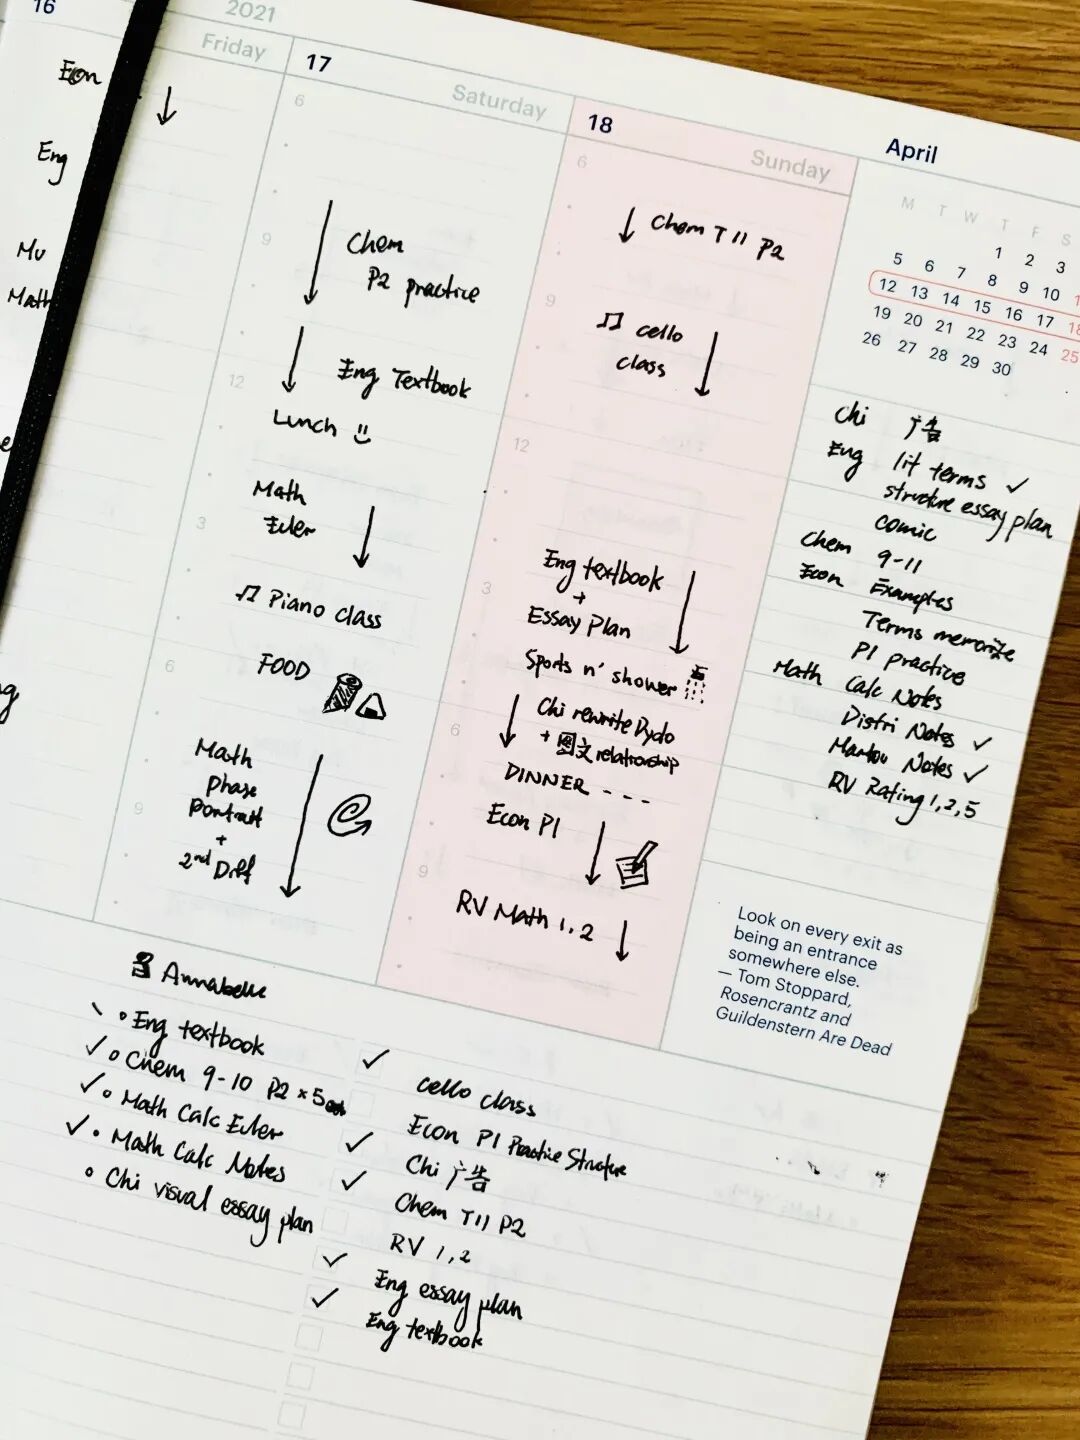 16
2021
Friday
Econ
Eng
Mu
Math
17
Saturday
6
9
Chem
P2 practice
Eng Textbook
12
Lunch
Math
Euler
3
♫ Piano class
FOOD
6
Math
phase
portrait
+
2nd Diff
9
18
Sunday
6
Chem T11 P2
9
♫ cello
class
12
Eng textbook
+
Essay Plan
3
Sports n' shower
Chi rewrite Dydo
+ 图文 relationship
6
DINNER - - -
Econ P1
9
RV Math 1, 2
April
M T W T F S
1 2 3
5 6 7 8 9 10
12 13 14 15 16 17 18
19 20 21 22 23 24 25
26 27 28 29 30
Chi 广告
Eng lit terms ✓
structure essay plan
comic
Chem 9-11
Econ Examples
Terms memorize
P1 practice
Math Calc Notes
Distri Notes ✓
Markov Notes ✓
RV Rating 1, 2, 5
Look on every exit as
being an entrance
somewhere else.
— Tom Stoppard,
Rosencrantz and
Guildenstern Are Dead
Annabelle
Eng textbook
✓ Chem 9-10 P2 ×5
✓ Math Calc Euler
✓ Math Calc Notes
Chi visual essay plan
✓ cello class
Econ P1 Practice Structure
✓ Chi 广告
✓ Chem T11 P2
RV 1, 2
✓ Eng essay plan
✓ Eng textbook